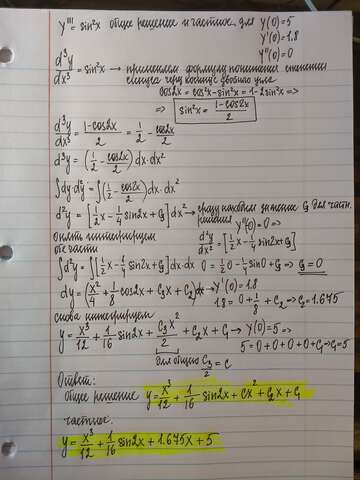 y''' = sin²x общее решение и частное для y(0)=5
y'(0)=1,8
y''(0)=0
d³y/dx³ = sin²x → применяем формулу понижения степени
синуса через косинус двойного угла
cos2x = cos²x - sin²x = 1 - 2sin²x ⇒
⇒ sin²x = (1-cos2x)/2
d³y/dx³ = (1-cos2x)/2 = 1/2 - cos2x/2
d³y = (1/2 - cos2x/2) dx·dx²
∫dy·d²y = ∫(1/2 - cos2x/2) dx·dx²
d²y = [1/2x - 1/4 sin2x + C₃] dx² → сразу находим значение C₃ для частн.
решения y''(0)=0 ⇒
Опять интегрируем
обе части
d²y/dx² = [1/2x - 1/4 sin2x + C₃]
∫d²y = ∫[1/2x - 1/4 sin2x + C₃] dx·dx 0 = 1/2·0 - 1/4 sin0 + C₃ ⇒ C₃ = 0
dy = (x²/4 + 1/8 cos2x + C₃x + C₂) dx → y'(0)=1.8
1.8 = 0 + 1/8 + C₂ ⇒ C₂ = 1.675
снова интегрируем
y = x³/12 + 1/16 sin2x + C₃x²/2 + C₂x + C₁ → y(0)=5 ⇒
5 = 0+0+0+0+C₁ ⇒ C₁=5
для общего C₃/2 = C
Ответ:
общее решение y = x³/12 + 1/16 sin2x + Cx² + C₂x + C₁
частное:
y = x³/12 + 1/16 sin2x + 1.675x + 5